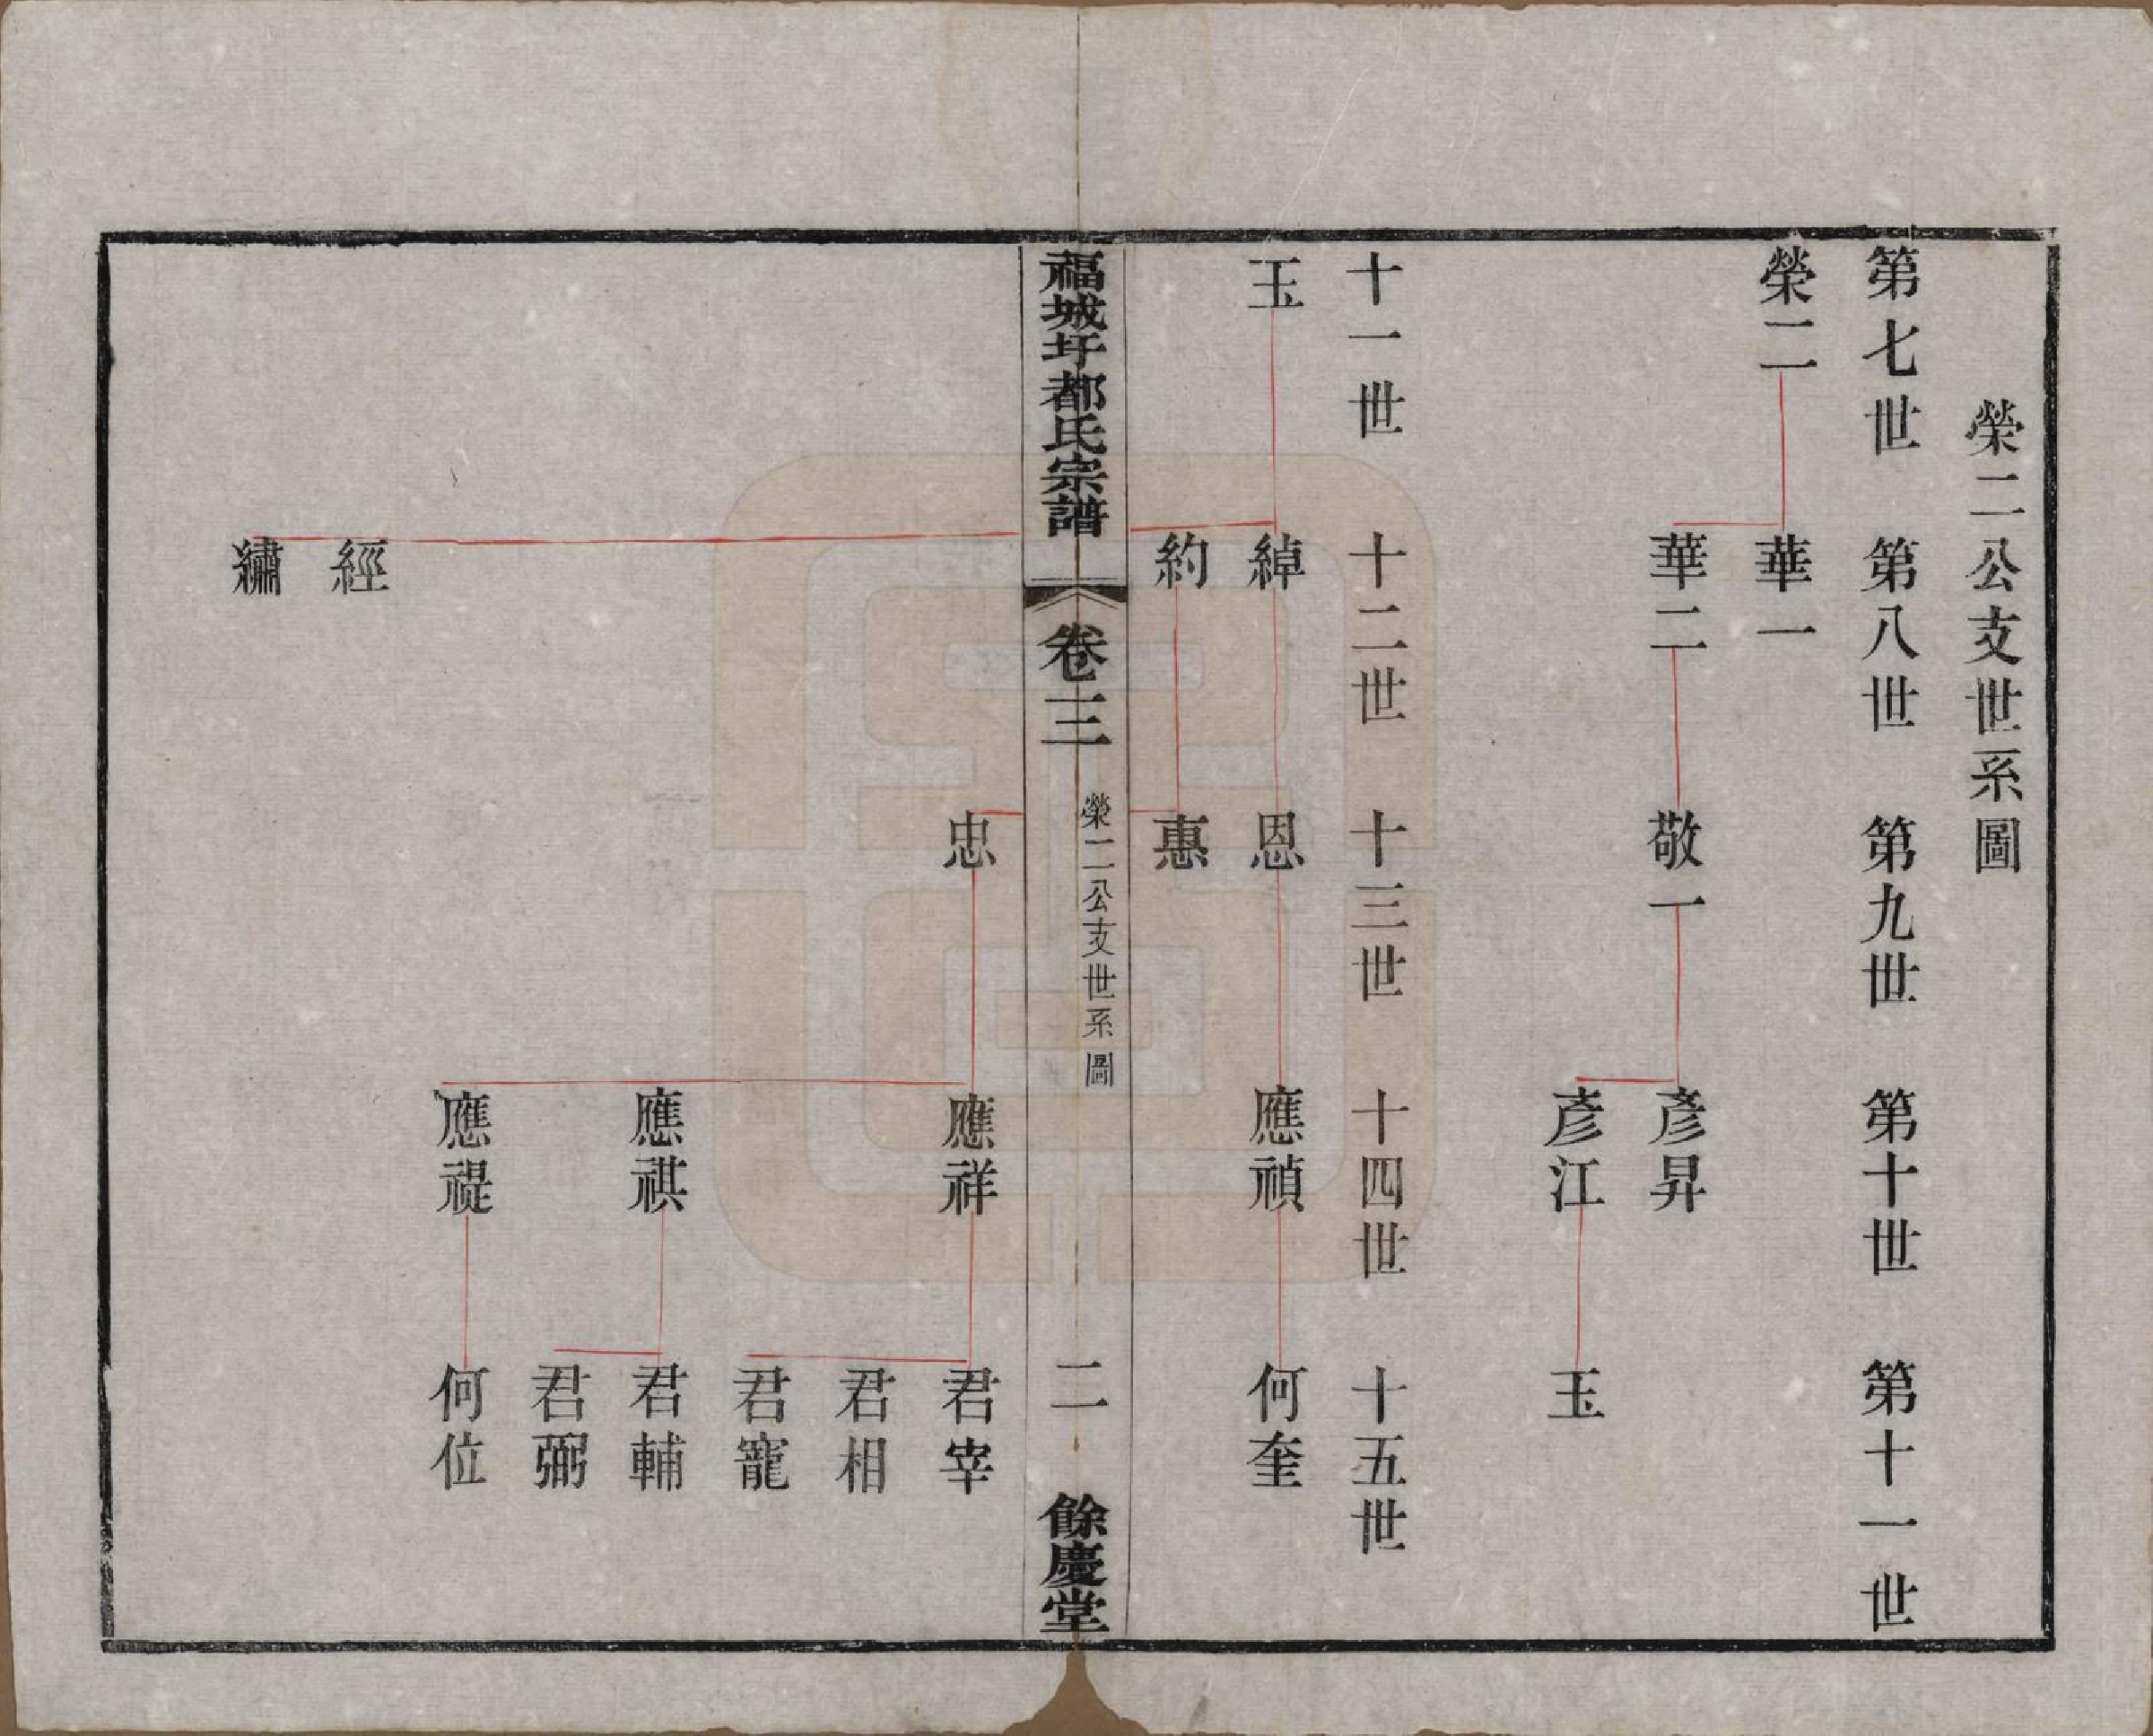 榮二公支世系圖
第七世 第八世 第九世 第十世 第十一世
榮二 華一
華二 敬一 彥昇
彥江 玉
十一世 十二世 十三世 十四世 十五世
玉 綽 恩 應禎 何奎
約 惠
福城圩都氏宗譜 卷三 榮二公支世系圖 二 餘慶堂
忠 應祥 君宰
君相
君寵
應祺 君輔
君弼
應禔 何位
經
繡